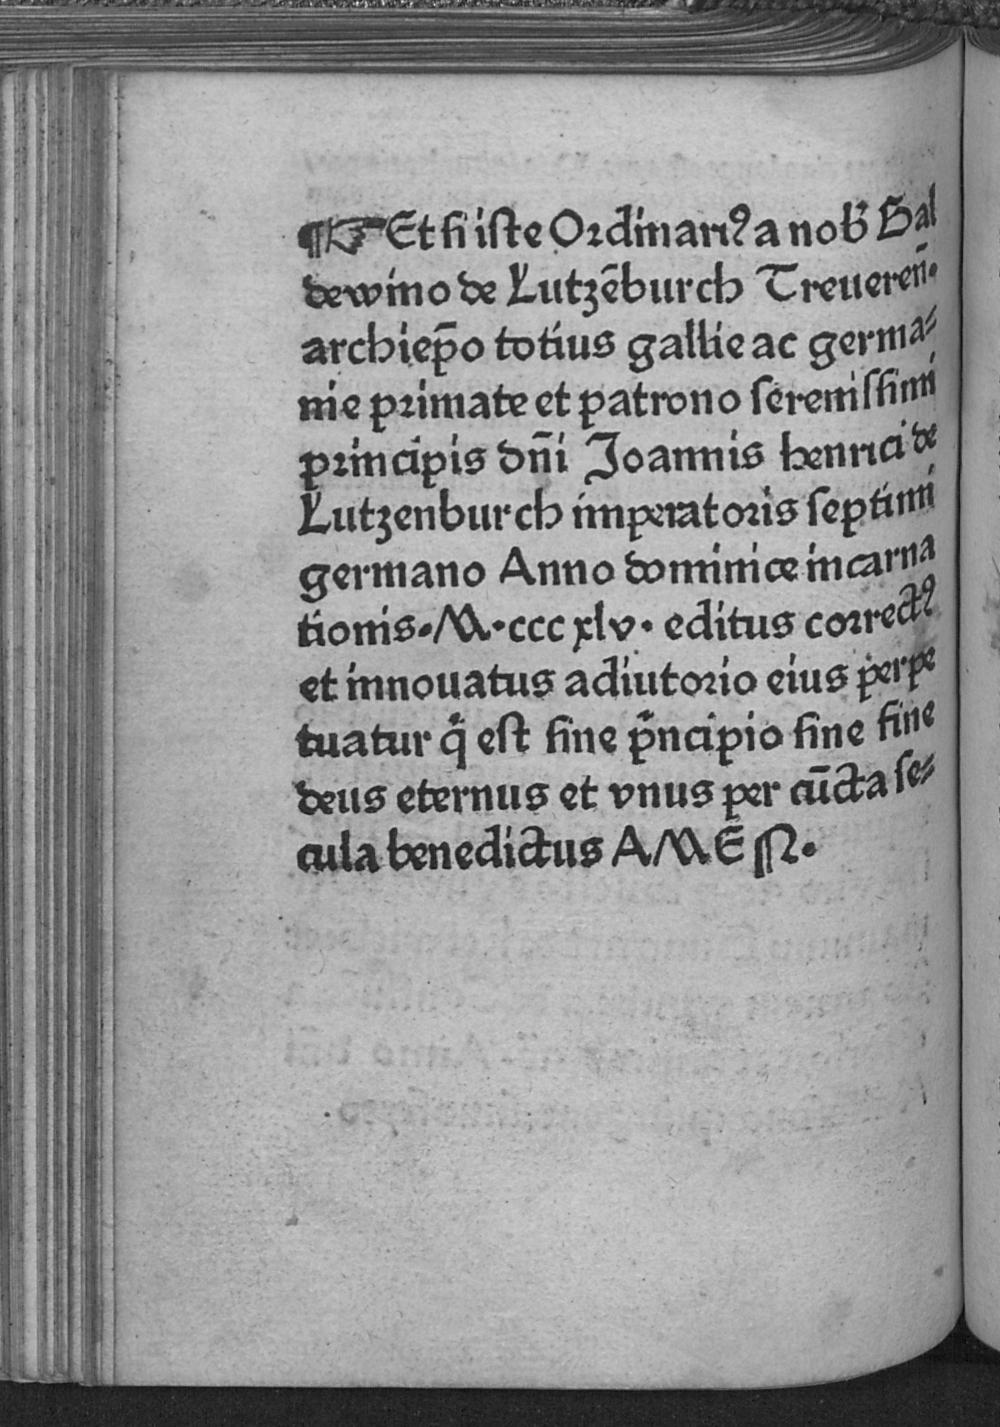 ¶☞Et ſi iſte Ordinariꝰ a nob̄ Bal
dewino de Lutzēburch Treuereñ.
archiep̄o totius gallie ac germa⸗
nie primate et patrono ſereniſſimi
principis dn̄i Joannis henrici de
Lutzenburch imperatoris ſeptimi
germano Anno dominice incarna
tionis.M.ccc xlv. editus correctꝰ
et innouatus adiutorio eius perpe
tuatur q̇ eſt ſine pͥncipio ſine fine
deus eternus et vnus per cūcta ſe⸗
cula benedictus AMEN.